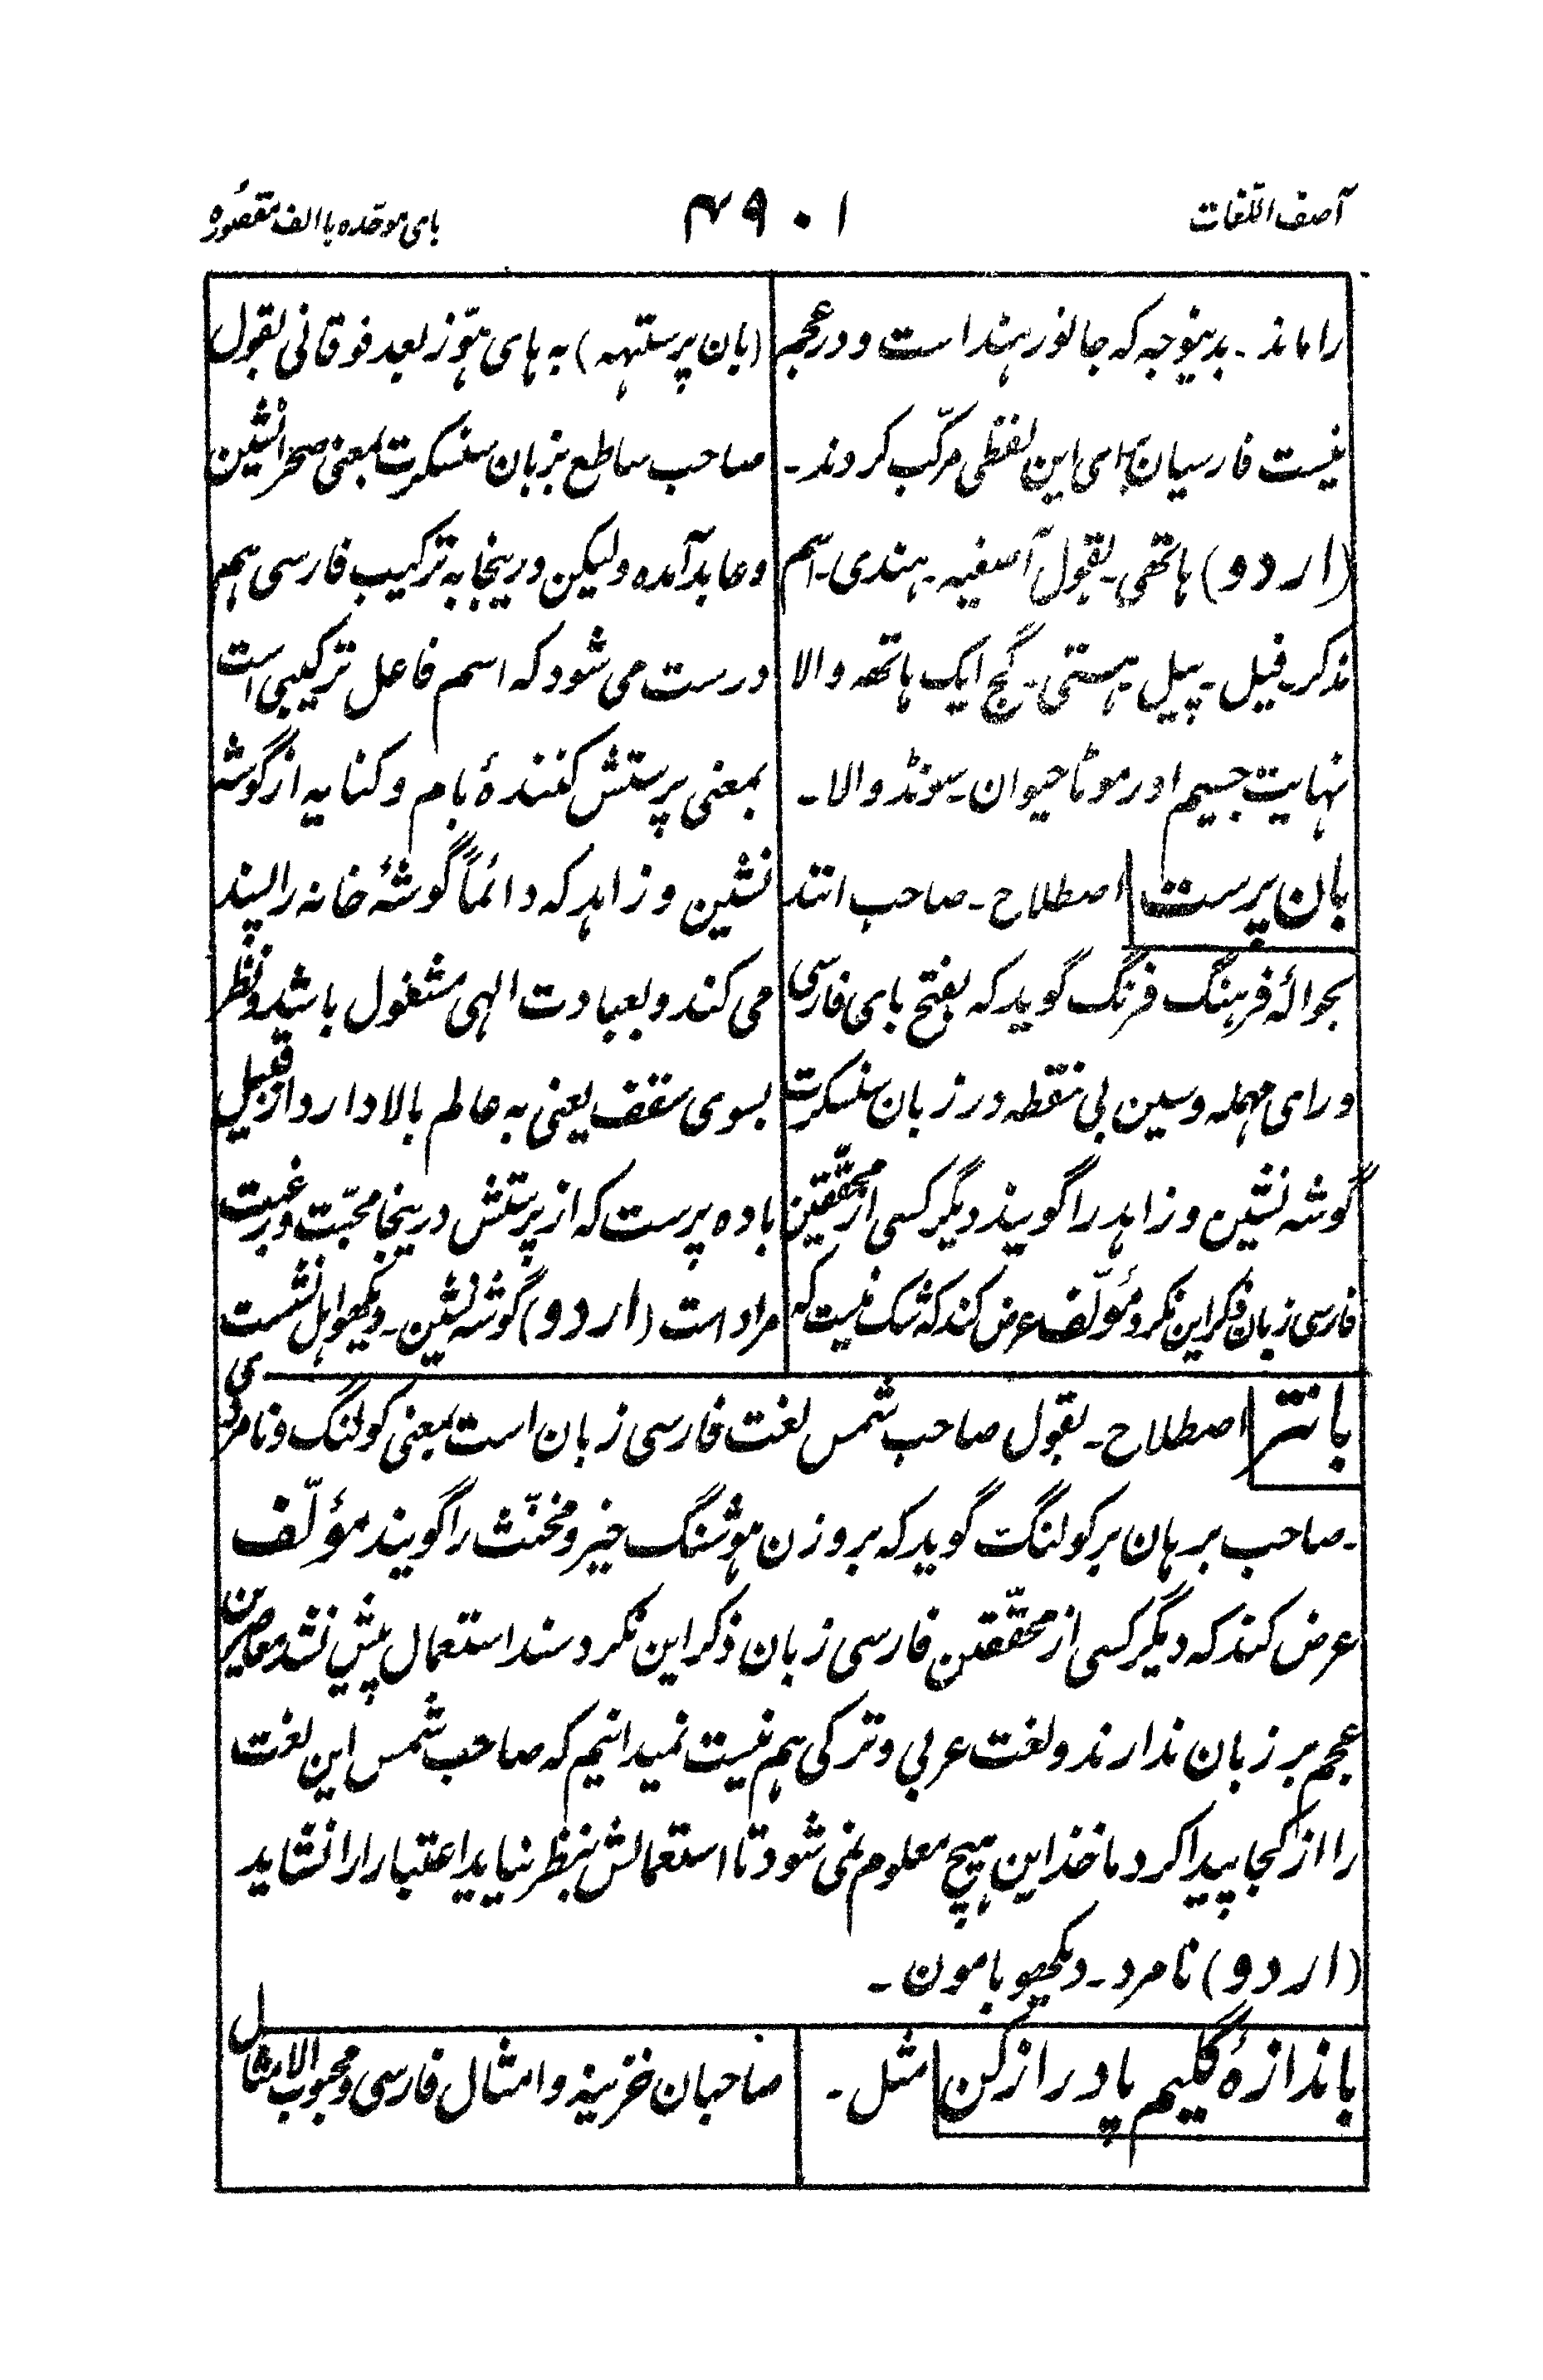 آصف اللّغات
۴۹۰۱
بای موحّده با الف مقصوره
را ماند ۔ بدینوجہ کہ جانور ہند است و در عجم
نیست فارسیان برای این لفظی مرکّب کردند ۔
(اردو) ہاتھی ۔ بقول آصفیہ ۔ ہندی ۔ اسم
مذکر ۔ فیل ۔ پیل ۔ ہستی ۔ گج ایک ہاتھہ والا
نہایت جسیم اور موٹا حیوان ۔ سونڈ والا ۔
بان پرست اصطلاح ۔ صاحب انند
بحوالۂ فرہنگ فرنگ گوید کہ بفتح بای فارسی
و رای مہملہ و سین بی نقطہ در زبان سنسکرت
گوشہ نشین و زاہد را گویند دیگر کسی از محقّقین
فارسی زبان ذکر این نکرد مؤلّف عرض کند کہ شک نیست کہ
(بان پرستہہ) بہ ہای ہوّز بعد فوقانی بقول
صاحب ساطع بزبان سنسکرت بمعنی صحرانشین
و عابد آمدہ ولیکن درینجا بہ ترکیب فارسی ہم
درست می شود کہ اسم فاعل ترکیبی است
بمعنی پرستش کنندۂ بام و کنایہ از گوشہ
نشین و زاہد کہ دائماً گوشۂ خانہ را پسند
می کند و بعبادت الہی مشغول باشد و نظر
بسوی سقف یعنی بہ عالم بالا دارد از قبیل
بادہ پرست کہ از پرستش درینجا محبّت و رغبت
مراد است (اردو) گوشہ نشین ۔ دیکھو اہل نشست
بانتر اصطلاح ۔ بقول صاحب شمس لغت فارسی زبان است بمعنی کولنگ و نامردی
۔ صاحب برہان بر کولنگ گوید کہ بروزن ہوشنگ حیز و مخنّث را گویند مؤلّف
عرض کند کہ دیگر کسی از محقّقین فارسی زبان ذکر این نکرد سند استعمال پیش نشد معاصرین
عجم بر زبان ندارند و لغت عربی و ترکی ہم نیست نمیدانیم کہ صاحب شمس این لغت
را از کجا پیدا کرد ماخذ این ہیچ معلوم نمی شود تا استعمالش بنظر نیاید اعتبار را نشاید
(اردو) نامرد ۔ دیکھو بامون ۔
باندازۂ گلیم پا دراز کن مثل ۔
صاحبان خزینہ و امثال فارسی و محبوب الامثال